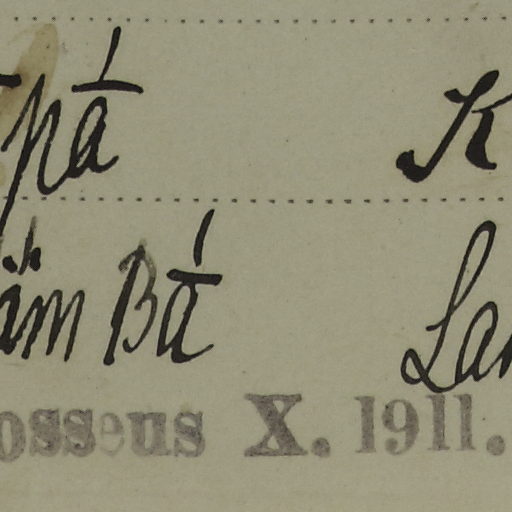 pā́ K
ām Bā́ Lan
osseus X. 1911.